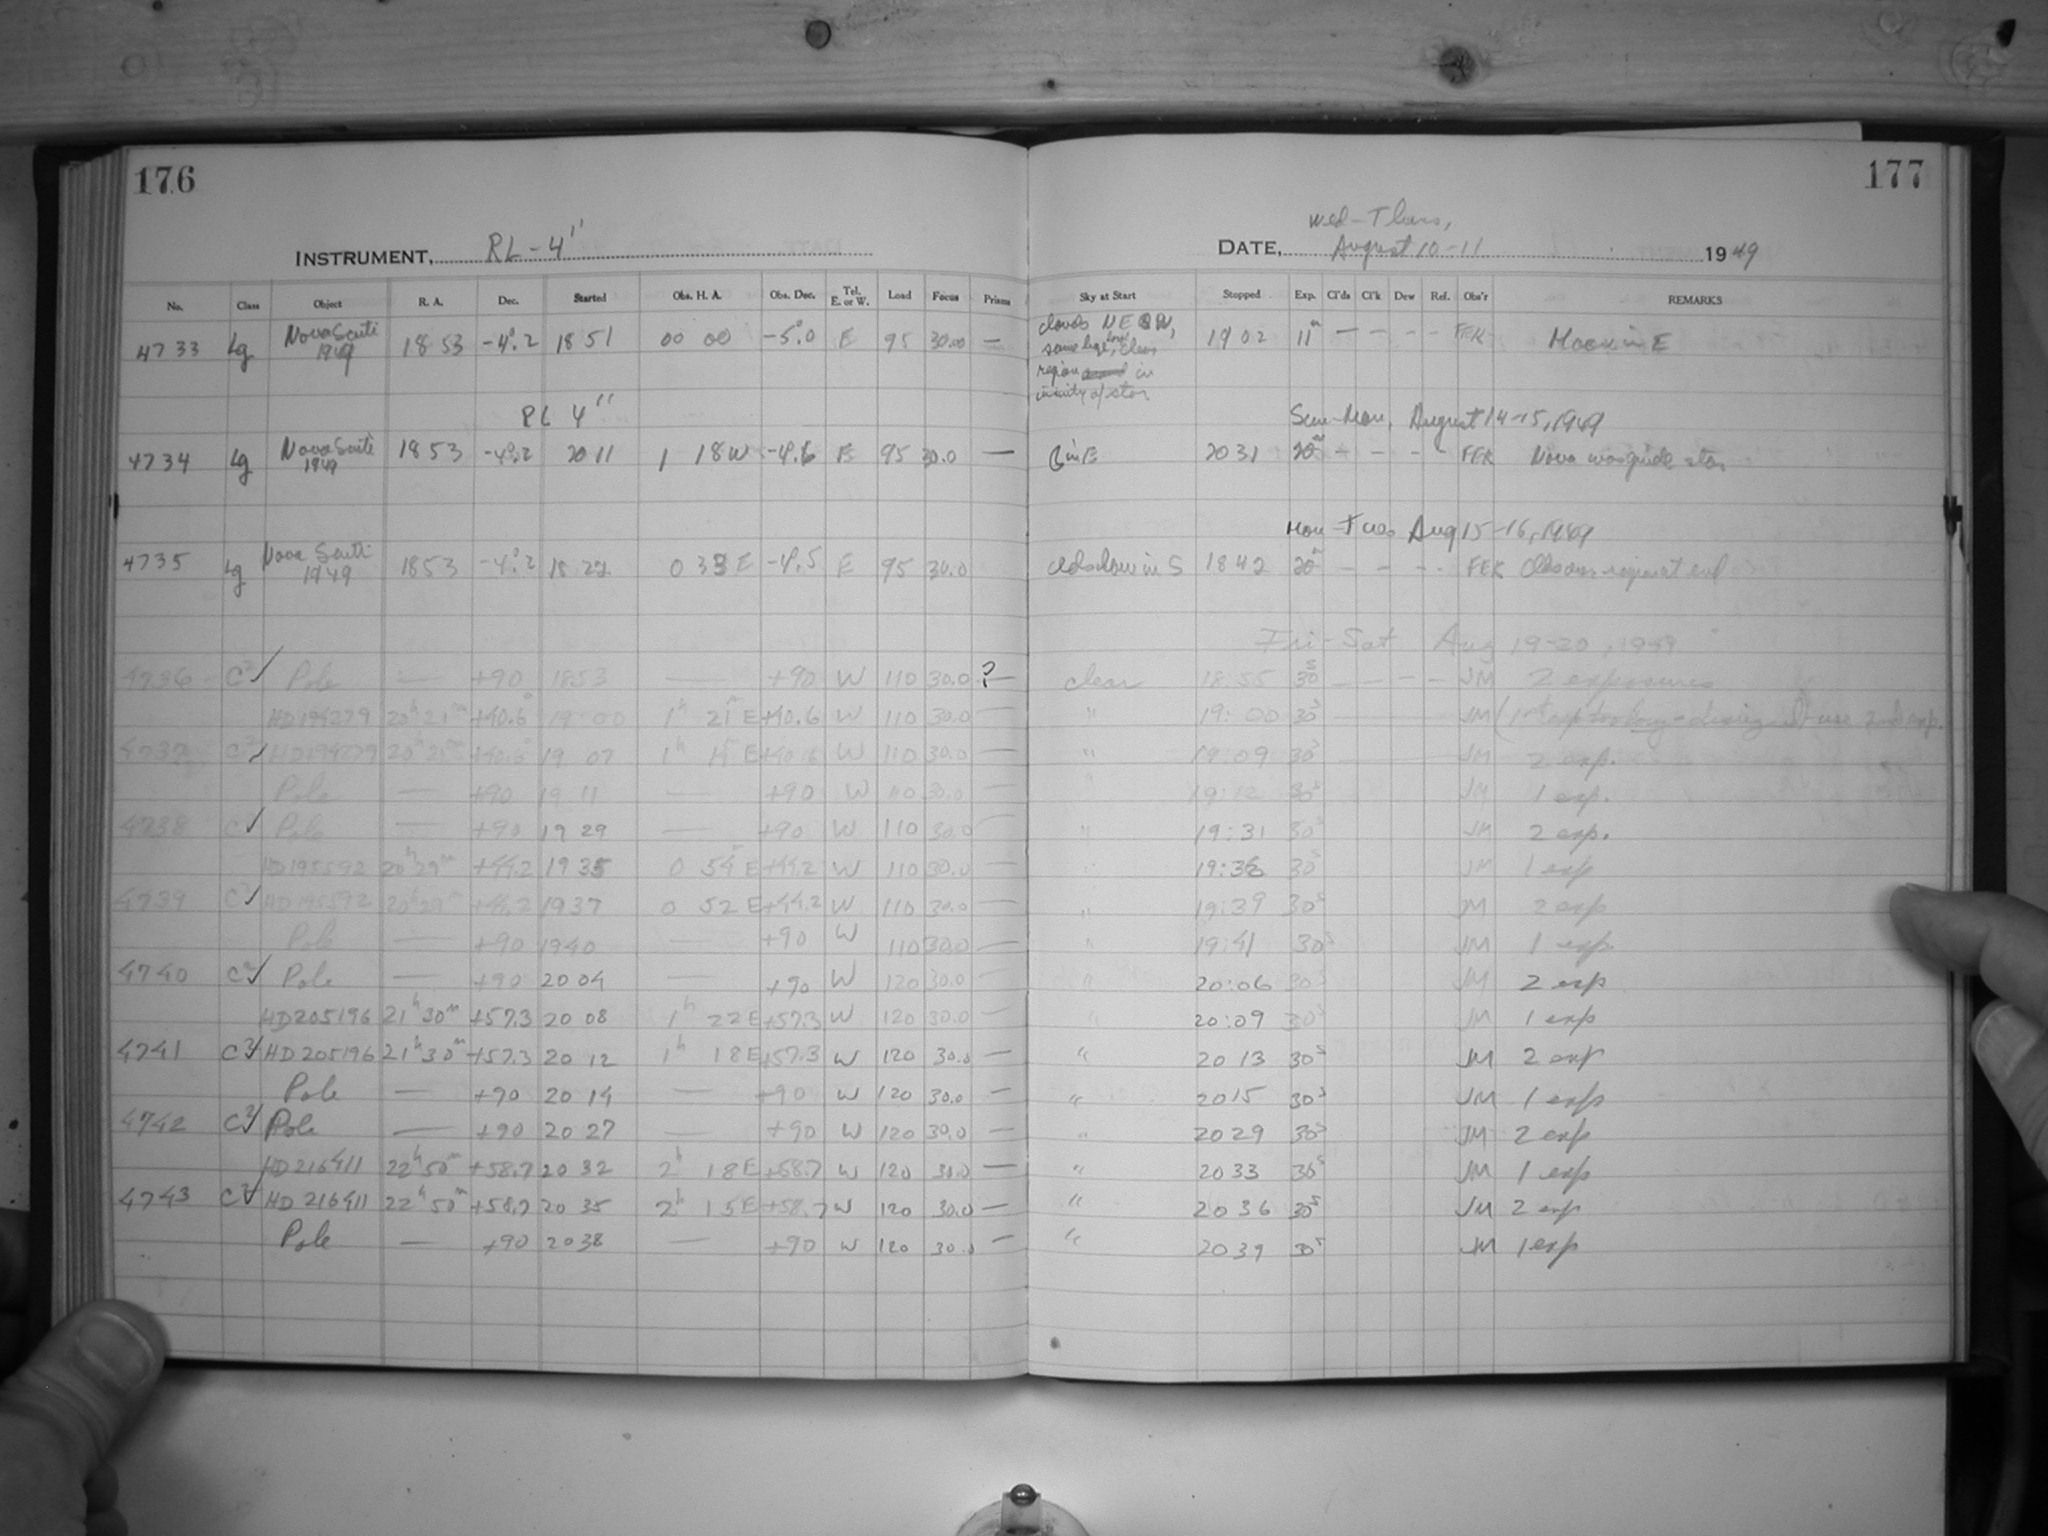 176
177
INSTRUMENT, RL-4"
Wed-Thurs,
DATE, August 10-11 1949
No. Class Object R. A. Dec. Started Obs. H. A. Obs. Dec. Tel. E. or W. Load Focus Prisms Sky at Start Stopped Exp. Cl'ds Cl'k Dew Ref. Obs'r REMARKS
4733 Lg Nova Scuti 1949 18 53 -4°.2 18 51 00 00 -5°.0 E 95 30.00 — clouds NE 19 02 11m — — — — FEK Moon in E
some haze, clear
region in
vicinity of star
RL 4" Sun-Mon, August 14-15, 1949
4734 Lg Nova Scuti 1949 18 53 -4°.2 20 11 1 18 W -4.6 E 95 30.0 — 20 31 20m — — — — FEK Nova was guide star
Mon-Tues Aug 15-16, 1949
4735 Lg Nova Scuti 1949 18 53 -4°.2 18 22 0 33 E -4.5 E 95 30.0 clds low in S 18 42 20m — — — — FEK
Fri-Sat Aug 19-20, 1949
4736 C2✓ Pole — +90 1853 — +90 W 110 30.0 ?— clear 18:55 30s — — — — JM 2 exposures
HD194279 20h 21m +40.6° 19:00 1h 21m E +40.6 W 110 30.0 — " 19:00 30s JM
4737 C2✓ HD194279 20h 21m +40.6° 19 07 1h 15 E +40.6 W 110 30.0 — " 19:09 30s JM 2 exp.
Pole — +90 19 11 — +90 W 110 30.0 — " 19:12 30s JM 1 exp.
4738 C✓ Pole — +90 19 29 — +90 W 110 30.0 — " 19:31 30s JM 2 exp.
HD195592 20h 29m +44.2 19 35 0 54 E +44.2 W 110 30.0 — " 19:36 30s JM 1 exp
4739 C2✓ HD195592 20h 29m +44.2 19 37 0 52 E +44.2 W 110 30.0 — " 19:39 30s JM 2 exp
Pole — +90 19 40 — +90 W 110 30.0 — " 19:41 30s JM 1 exp.
4740 C2✓ Pole — +90 20 04 — +90 W 120 30.0 — " 20:06 30s JM 2 exp
HD205196 21h 30m +57.3 20 08 1h 22 E +57.3 W 120 30.0 — " 20:09 30s JM 1 exp
4741 C2✓ HD205196 21h 30m +57.3 20 12 1h 18 E +57.3 W 120 30.0 — " 20 13 30s JM 2 exp
Pole — +90 20 14 — +90 W 120 30.0 — " 20 15 30s JM 1 exp
4742 C2✓ Pole — +90 20 27 — +90 W 120 30.0 — " 20 29 30s JM 2 exp
HD216411 22h 50m +58.7 20 32 2h 18 E +58.7 W 120 30.0 — " 20 33 30s JM 1 exp
4743 C2✓ HD216411 22h 50m +58.7 20 35 2h 15 E +58.7 W 120 30.0 — " 20 36 30s JM 2 exp
Pole — +90 20 38 — +90 W 120 30.0 — " 20 39 30s JM 1 exp